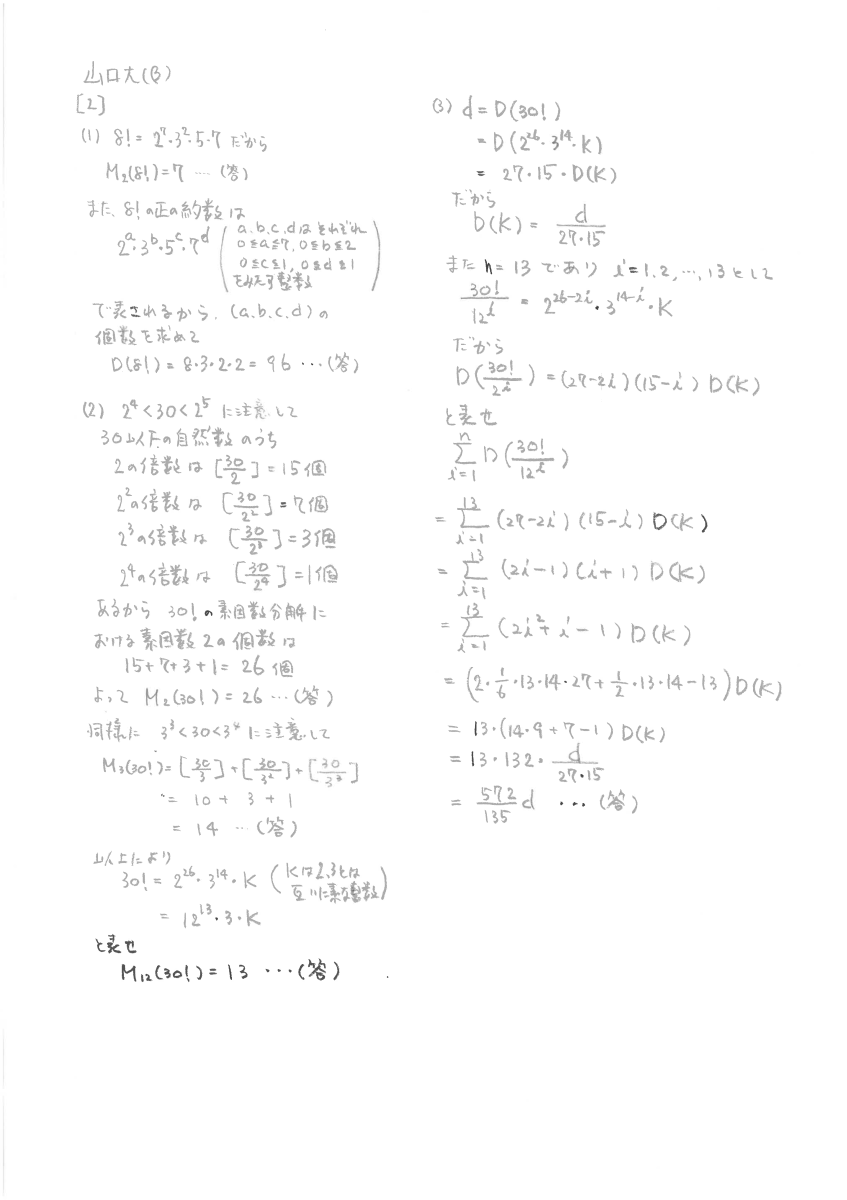 山口大(B)
[2]
(1) 8! = 2⁷・3²・5・7 だから
M₂(8!) = 7 … (答)
また、8!の正の約数は
2ᵃ・3ᵇ・5ᶜ・7ᵈ (a.b.c.dはそれぞれ
0≦a≦7, 0≦b≦2
0≦c≦1, 0≦d≦1
をみたす整数)
で表されるから、(a.b.c.d)の
個数を求めて
D(8!) = 8・3・2・2 = 96 …(答)
(2) 2⁴<30<2⁵ に注意して
30以下の自然数のうち
2の倍数は [30/2] = 15個
2²の倍数は [30/2²] = 7個
2³の倍数は [30/2³] = 3個
2⁴の倍数は [30/2⁴] = 1個
あるから 30!の素因数分解に
おける素因数2の個数は
15+7+3+1 = 26個
よって M₂(30!) = 26 …(答)
同様に 3³<30<3⁴ に注意して
M₃(30!) = [30/3]+[30/3²]+[30/3³]
= 10 + 3 + 1
= 14 … (答)
以上により
30! = 2²⁶・3¹⁴・K (Kは2,3とは
互いに素な整数)
= 12¹³・3・K
と表せ
M₁₂(30!) = 13 …(答)
(3) d = D(30!)
= D(2²⁶・3¹⁴・K)
= 27・15・D(K)
だから
D(K) = d/27・15
また n = 13 であり i = 1.2, …, 13として
30!/12ⁱ = 2²⁶⁻²ⁱ・3¹⁴⁻ⁱ・K
だから
D(30!/2ⁱ) = (27-2i)(15-i) D(K)
と表せ
Σ[i=1→n] D(30!/12ⁱ)
= Σ[i=1→13] (27-2i)(15-i) D(K)
= Σ[i=1→13] (2i-1)(i+1) D(K)
= Σ[i=1→13] (2i²+i-1) D(K)
= (2・1/6・13・14・27+1/2・13・14-13) D(K)
= 13・(14・9+7-1) D(K)
= 13・132・d/27・15
= 572/135 d … (答)